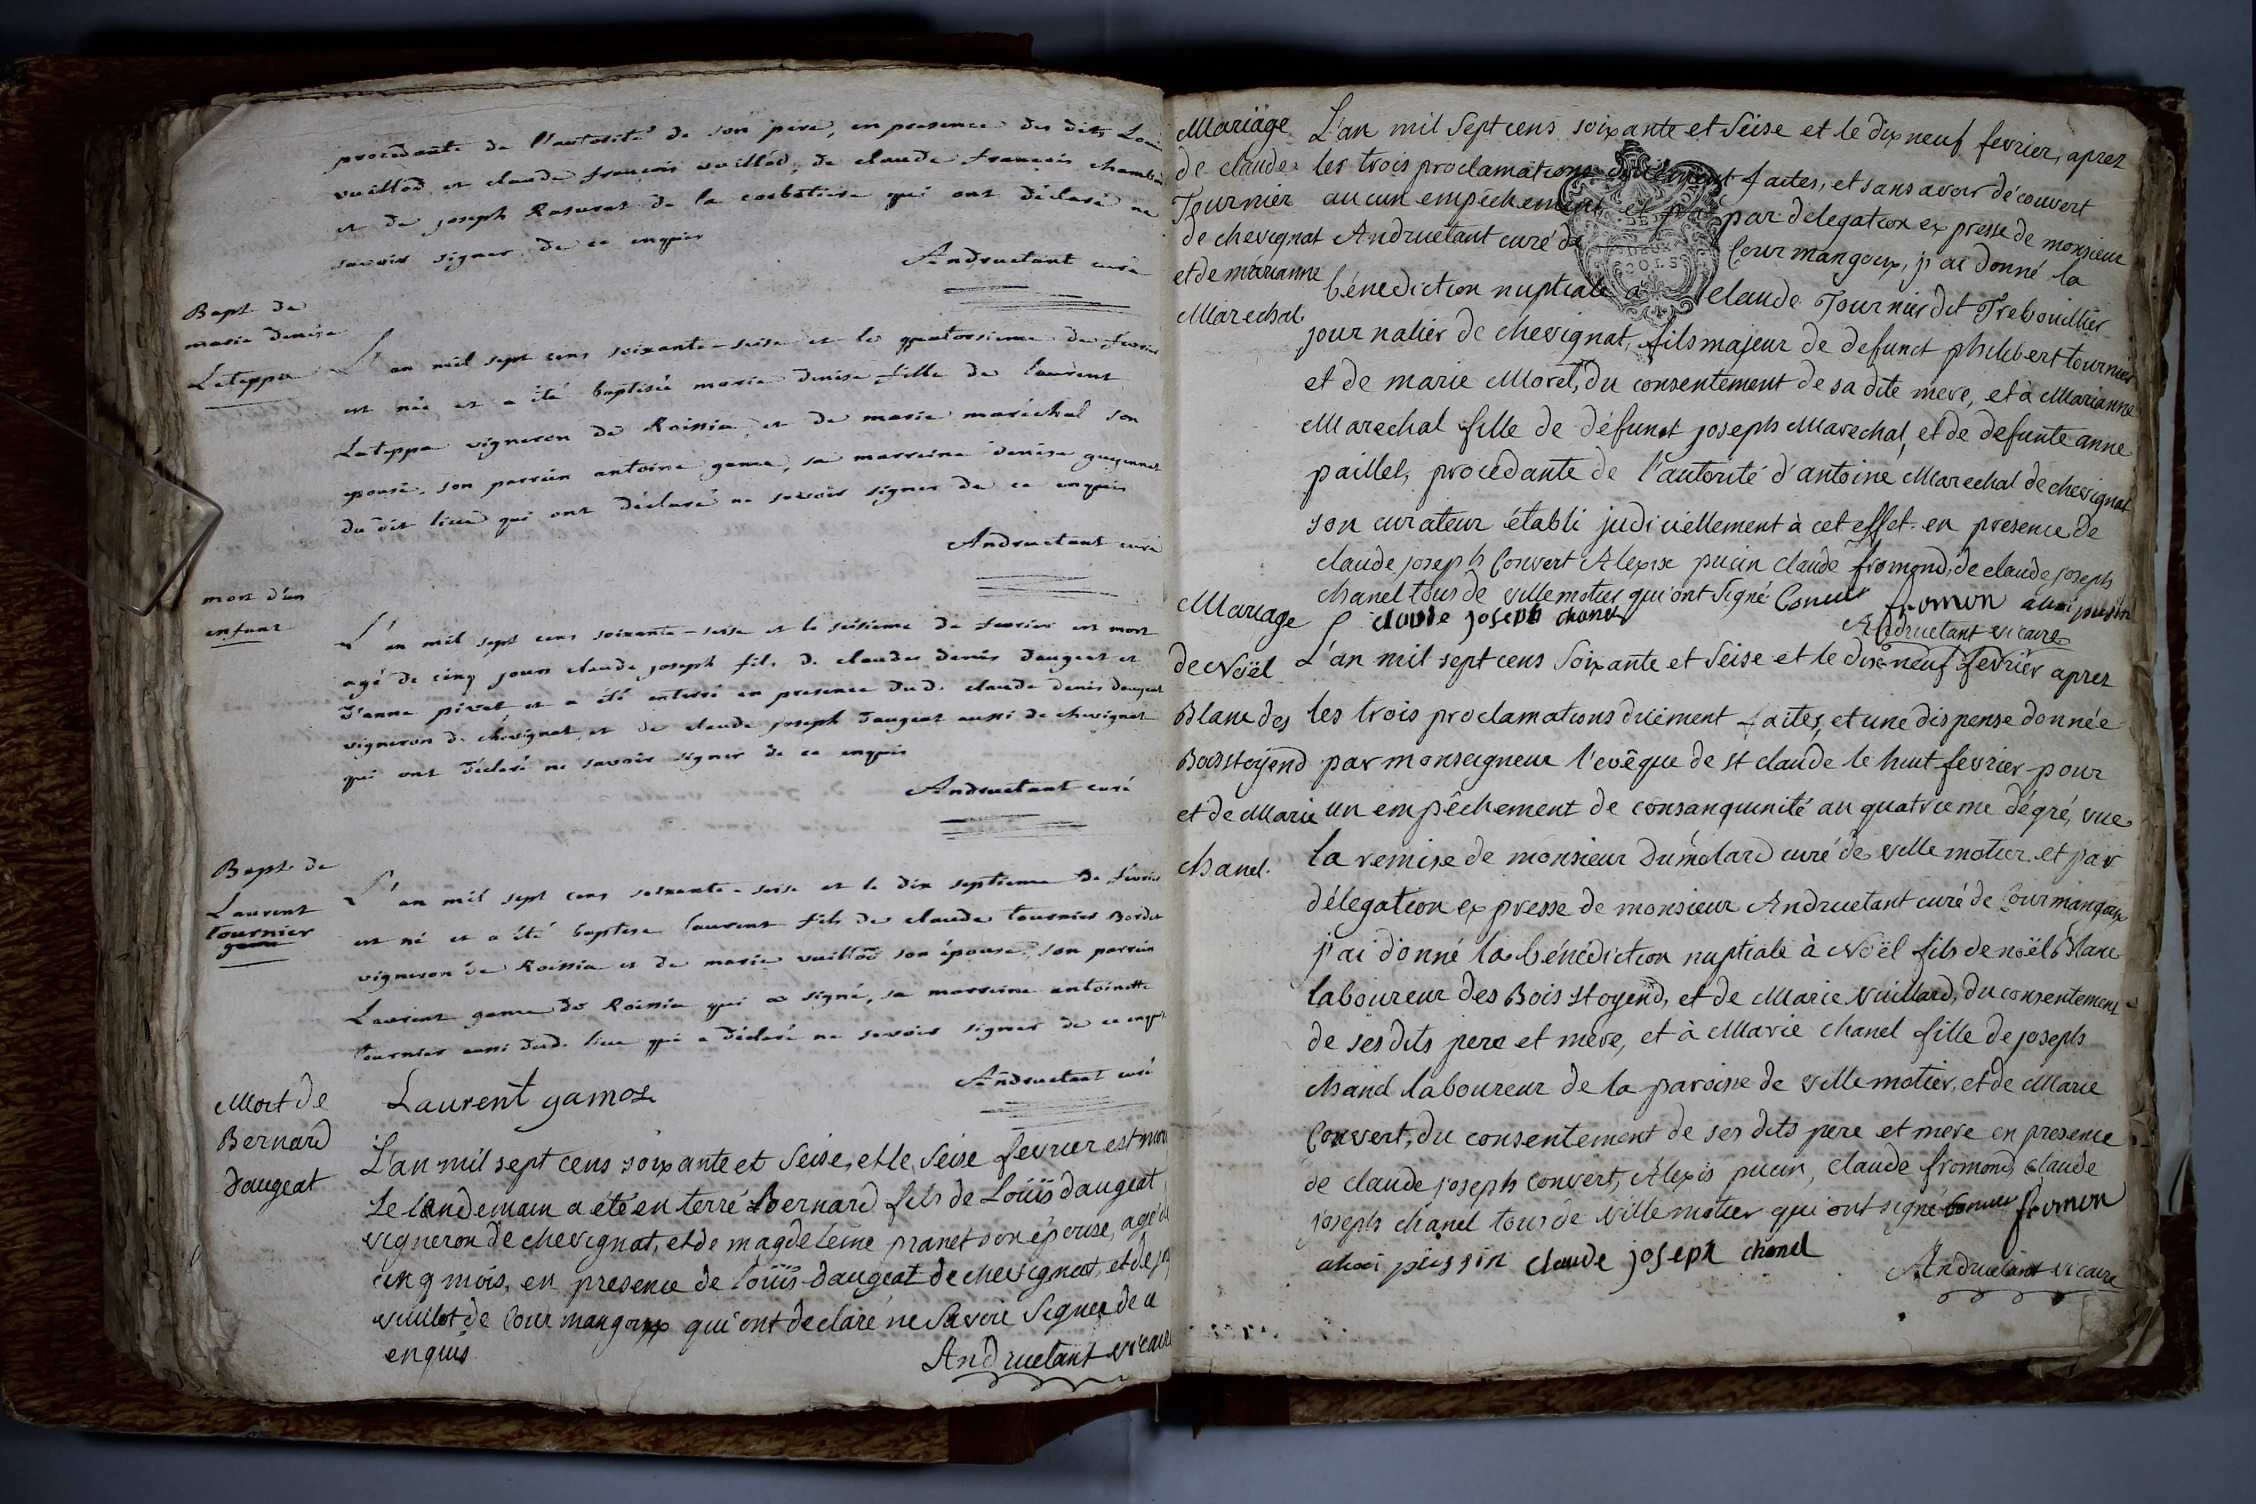 procedante de l'autorité de son pere, en presence des dits Louis
vuillod et claude françois vuillod, de claude françois
et de joseph Rasurat de la corbetiere qui ont déclaré ne
savoir signer de ce enquis
Andruetant curé
Bapt de
marie denise
Lateppe
L'an mil sept cens soixante-seise et le quatorsieme de fevrier
est née et a été baptisée marie denise fille de laurent
Lateppe vigneron de Roissia et de marie maréchal son
epouse, son parrein antoine game, sa marreine denise guyennet
du dit lieu qui ont déclaré ne savoir signer de ce enquis
Andruetant curé
mort d'un
enfant
L'an mil sept cens soixante-seise et le seisieme de fevrier est mort
agé de cinq jours claude joseph fils de claude denis daugeat et
d'anne pivet et a été enterré en presence dud. claude denis daugeat
vigneron de chevignat, et de claude joseph daugeat aussi de chevignat
qui ont déclaré ne savoir signer de ce enquis
Andruetant curé
Bapt. de
Laurent
tournier
game
L'an mil sept cens soixante-seise et le dix septieme de fevrier
est né et a été baptisé laurent fils de claude tournier Bordet
vigneron de Roissia et de marie vuillod son épouse, son parrein
Laurent game de Roissia qui a signé, sa marreine antoinette
tournier aussi dud. lieu qui a déclaré ne savoir signer de ce enquis
Andruetant curé
Laurent gamos
Mort de
Bernard
daugeat
L'an mil sept cens soixante et seise, et le seise fevrier est mort
Le landemain a été en terré Bernard fils de Loüis daugeat
vigneron de chevignat, et de magdeleine pranet son épouse, agé de
cinq mois, en presence de loüis daugeat de chevignat, et de
vuillot de Courmangoux qui ont declaré ne savoir signer de ce
enquis
Andruetant vicaire
Mariage
de claude
Tournier
de chevignat
et de marianne
Marechal
L'an mil sept cens soixante et seise et le dix neuf fevrier, aprez
les trois proclamations duëment faites, et sans avoir découvert
aucun empêchement et par delegation expresse de monsieur
Andruetant curé de Courmangoux, j'ai donné la
bénediction nuptiale à claude Tournier dit Trebouillier
journalier de chevignat, fils majeur de defunct philibert tournier
et de marie Morel, du consentement de sa dite mere, et à Marianne
Marechal fille de défunct joseph Marechal, et de defunte anne
paillet, procedante de l'autorité d'antoine Marechal de chevignat
son curateur établi judiciellement à cet effet. en presence de
claude joseph Convert Alexise pucin claude fromond, de claude joseph
chanel tous de villemotier qui ont signé Convert fromon alexi pussin
claude joseph chanel
Andruetant vicaire
Mariage
de Noël
Blanc des
Bois stoyend
et de Marie
chanel.
L'an mil sept cens soixante et seise et le dix-neuf fevrier aprez
les trois proclamations duëment faites, et une dispense donnée
par monseigneur l'evêque de st claude le huit fevrier pour
un empêchement de consanguinité au quatrieme dégré, vue
la remise de monsieur Dumolard curé de villemotier et par
délegation expresse de monsieur Andruetant curé de Courmangoux
j'ai donné la bénédiction nuptiale à Noël fils de noël Blanc
laboureur des Bois stoyend, et de Marie Vuillard, du consentement
de ses dits pere et mere, et à Marie chanel fille de joseph
chanel laboureur de la paroisse de villemotier, et de Marie
Convert, du consentement de ses dits pere et mere en presence
de claude joseph Convert, Alexis pucin, claude fromond, claude
joseph chanel tous de Villemotier qui ont signé Convert fromon
alexi pussin claude joseph chanel
Andruetant vicaire